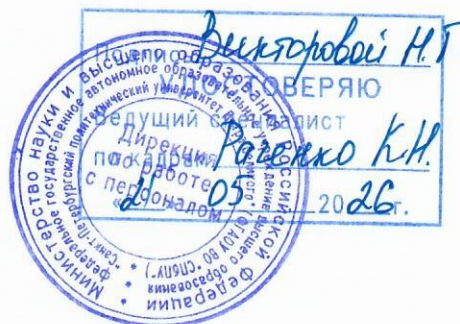 Подпись Викторовой Н.Г
УДОСТОВЕРЯЮ
Ведущий специалист
по кадрам Раченко К.Н.
«21» 05 2026г.
Министерство науки и высшего образования Российской Федерации
федеральное государственное автономное образовательное учреждение высшего образования
"Санкт-Петербургский политехнический университет
(ФГАОУ ВО "СПбПУ")
Дирекция
по работе
с персоналом